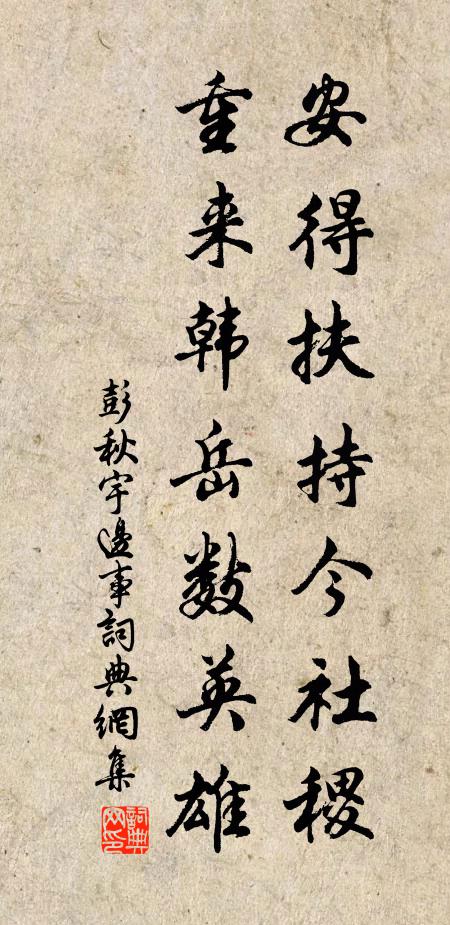 安得扶持今社稷
重来韩岳数英雄
彭秋宇邊事詞典網集
詞典网印